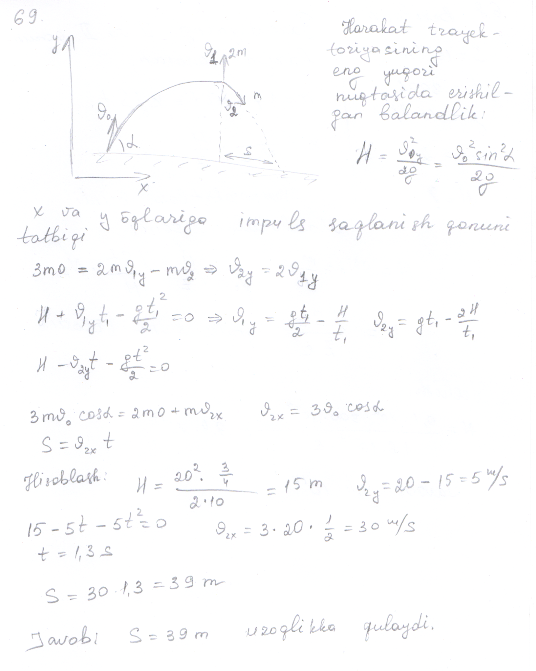 69.
y
x
ϑ₀
α
ϑ₁ 2m
ϑ₂ m
s
Harakat trayek-
toriyasining
eng yuqori
nuqtasida erishil-
gan balandlik:
H = ϑ₀y²/2g = ϑ₀² sin²α/2g
x va y o'qlariga impuls saqlanish qonuni
tatbiqi
3m0 = 2mϑ₁y − mϑ₂ ⇒ ϑ₂y = 2ϑ₁y
H + ϑ₁y t₁ − gt₁²/2 = 0 ⇒ ϑ₁y = gt₁/2 − H/t₁ ϑ₂y = gt₁ − 2H/t₁
H − ϑ₂y t − gt²/2 = 0
3mϑ₀ cosα = 2m0 + mϑ₂x ϑ₂x = 3ϑ₀ cosα
S = ϑ₂x t
Hisoblash: H = (20² · 3/4)/(2·10) = 15 m ϑ₂y = 20 − 15 = 5 m/s
15 − 5t − 5t² = 0 ϑ₂x = 3 · 20 · 1/2 = 30 m/s
t = 1,3 s
S = 30 · 1,3 = 39 m
Javobi S = 39 m uzoqlikka qulaydi.